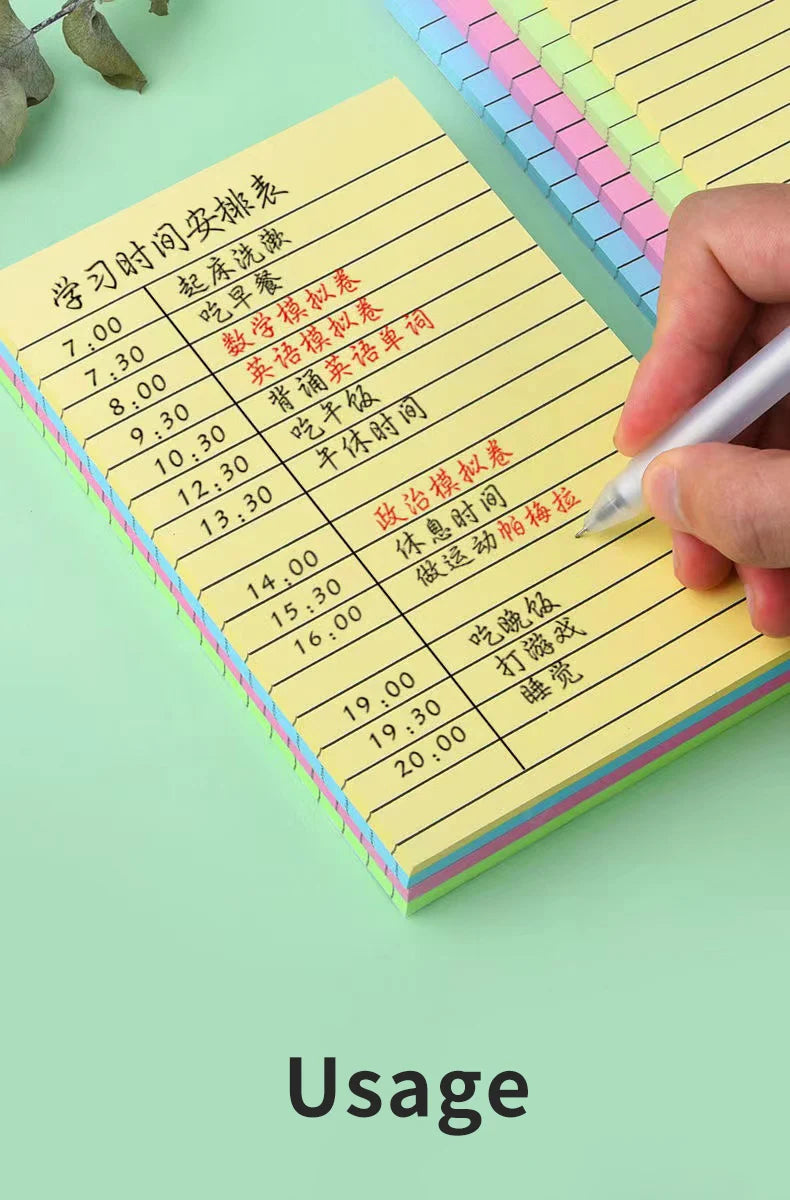 学习时间安排表
7:00 起床洗漱
7:30 吃早餐
8:00 数学模拟卷
9:30 英语模拟卷
10:30 背诵英语单词
12:30 吃午饭
13:30 午休时间
14:00 政治模拟卷
15:30 休息时间
16:00 做运动帕梅拉
19:00 吃晚饭
19:30 打游戏
20:00 睡觉
Usage